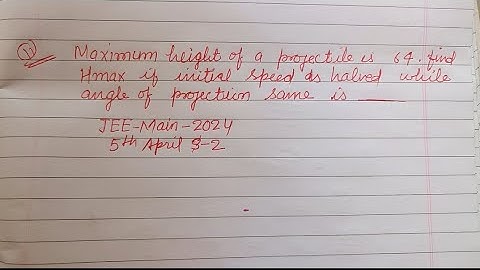 11 Maximum height of a projectile is 64. find
Hmax if initial speed is halved while
angle of projection same is ____
JEE-Main-2024
5th April S-2